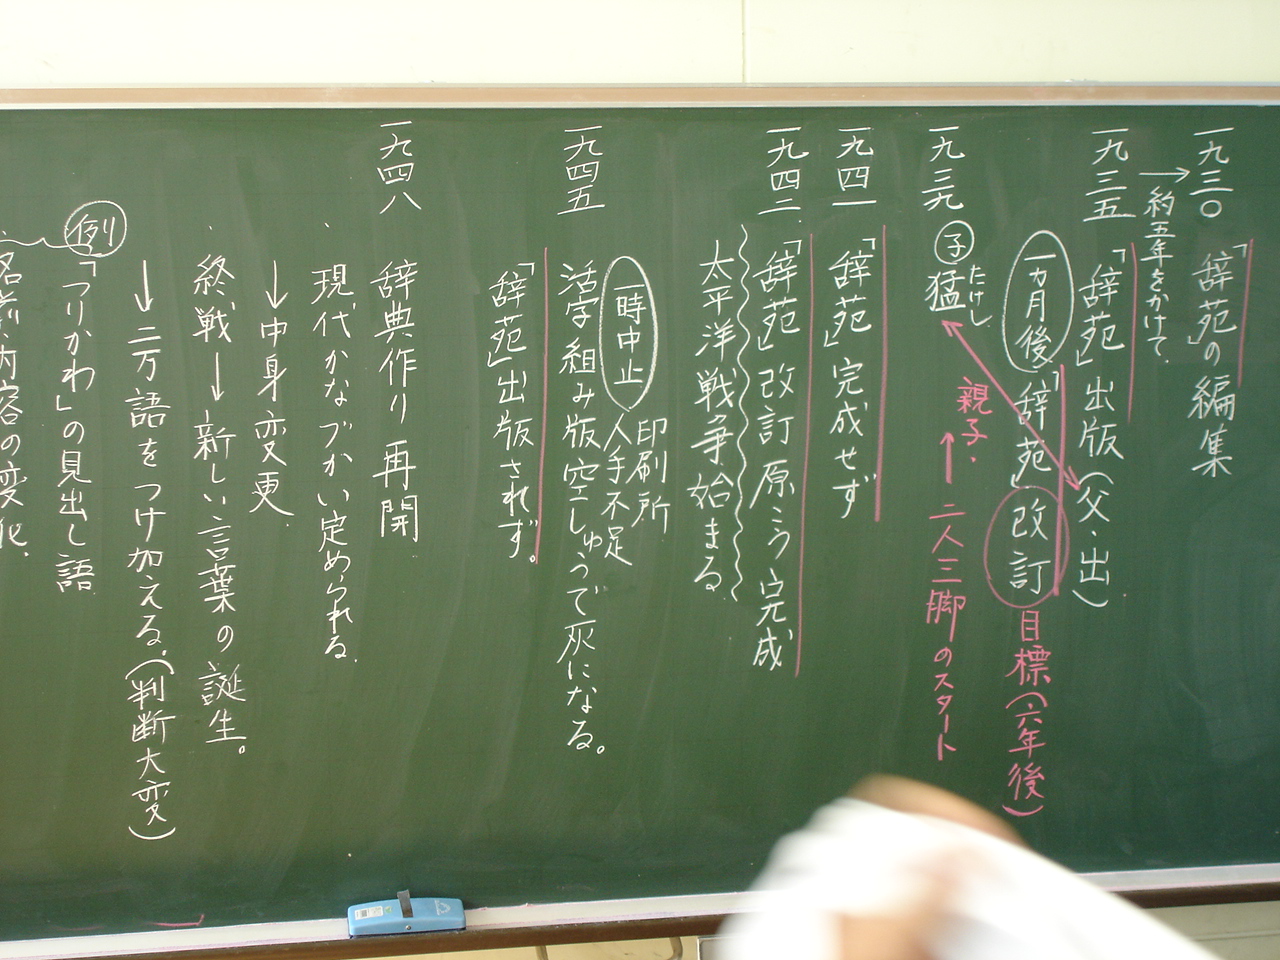 一九三〇
「辞苑」の編集
約五年をかけて
一九三五
「辞苑」出版(父・出)
一カ月後「辞苑」改訂
目標(六年後)
一九三九
子
猛
たけし
親子
二人三脚のスタート
一九四一
「辞苑」完成せず
一九四二
「辞苑」改訂原こう完成
太平洋戦争始まる
印刷所
人手不足
一時中止
一九四五
活字組み版空しゅうで灰になる。
「辞苑」出版されず。
一九四八
辞典作り再開
現代かなづかい定められる
→中身変更
終戦→新しい言葉の誕生。
→二万語をつけ加える。(判断大変)
例
「つりかわ」の見出し語
内容の変化